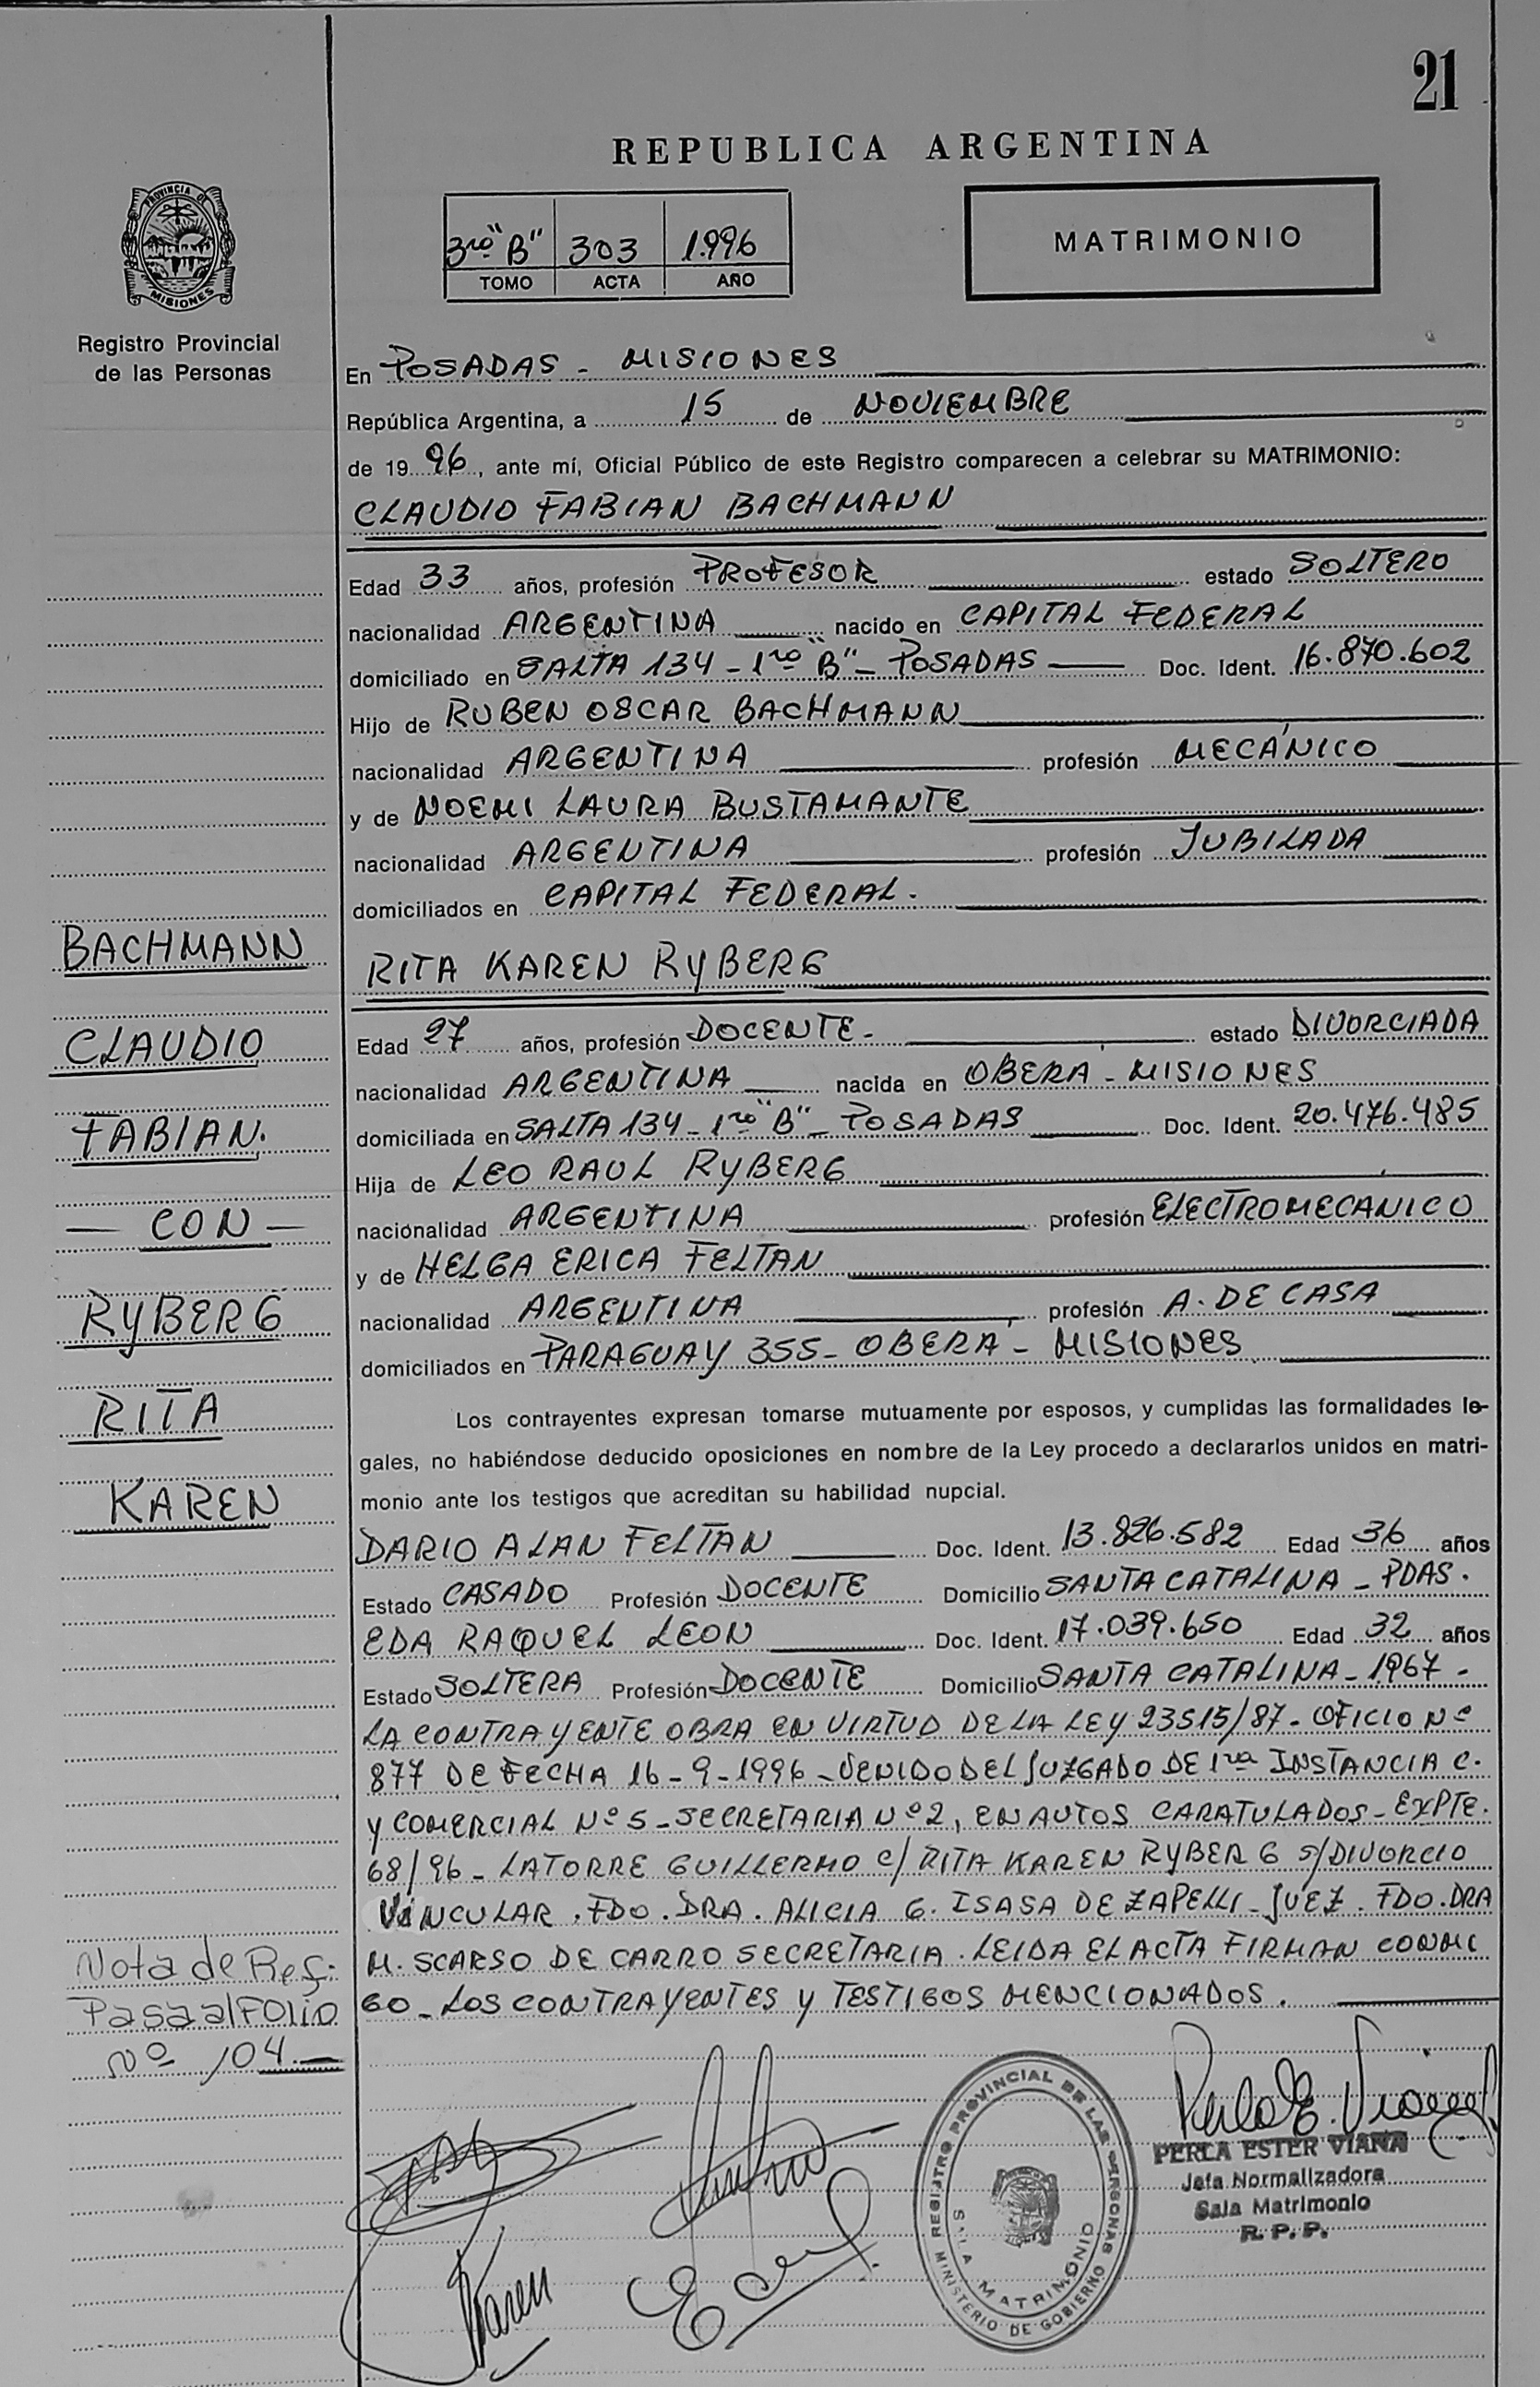 21
REPUBLICA ARGENTINA
PROVINCIA DE
MISIONES
Registro Provincial
de las Personas
3ro "B" 303 1.996
TOMO ACTA AÑO
MATRIMONIO
En POSADAS - MISIONES
República Argentina, a 15 de NOVIEMBRE
de 1996, ante mí, Oficial Público de este Registro comparecen a celebrar su MATRIMONIO:
CLAUDIO FABIAN BACHMANN
Edad 33 años, profesión PROFESOR estado SOLTERO
nacionalidad ARGENTINA nacido en CAPITAL FEDERAL
domiciliado en SALTA 134 - 1ro "B" - POSADAS Doc. Ident. 16.870.602
Hijo de RUBEN OSCAR BACHMANN
nacionalidad ARGENTINA profesión MECÁNICO
y de NOEMI LAURA BUSTAMANTE
nacionalidad ARGENTINA profesión JUBILADA
domiciliados en CAPITAL FEDERAL.
RITA KAREN RYBERG
Edad 27 años, profesión DOCENTE - estado DIVORCIADA
nacionalidad ARGENTINA nacida en OBERA - MISIONES
domiciliada en SALTA 134 - 1ro "B" - POSADAS Doc. Ident. 20.476.485
Hija de LEO RAUL RYBERG
nacionalidad ARGENTINA profesión ELECTROMECANICO
y de HELGA ERICA FELTAN
nacionalidad ARGENTINA profesión A. DE CASA
domiciliados en PARAGUAY 355 - OBERÁ - MISIONES
Los contrayentes expresan tomarse mutuamente por esposos, y cumplidas las formalidades le-
gales, no habiéndose deducido oposiciones en nombre de la Ley procedo a declararlos unidos en matri-
monio ante los testigos que acreditan su habilidad nupcial.
DARIO ALAN FELTAN Doc. Ident. 13.826.582 Edad 36 años
Estado CASADO Profesión DOCENTE Domicilio SANTA CATALINA - PDAS.
EDA RAQUEL LEON Doc. Ident. 17.039.650 Edad 32 años
Estado SOLTERA Profesión DOCENTE Domicilio SANTA CATALINA - 1967 -
LA CONTRAYENTE OBRA EN VIRTUD DE LA LEY 23515/87 - OFICIO Nº
877 DE FECHA 16-9-1996 - VENIDO DEL JUZGADO DE 1ra INSTANCIA C.
Y COMERCIAL Nº 5 - SECRETARIA Nº 2, EN AUTOS CARATULADOS - EXPTE.
68/96 - LATORRE GUILLERMO C/ RITA KAREN RYBERG S/DIVORCIO
VINCULAR. FDO. DRA. ALICIA G. ISASA DE ZAPELLI - JUEZ. FDO. DRA
M. SCARSO DE CARRO SECRETARIA. LEIDA EL ACTA FIRMAN CONMI
GO - LOS CONTRAYENTES Y TESTIGOS MENCIONADOS.
BACHMANN
CLAUDIO
FABIAN.
- CON -
RYBERG
RITA
KAREN
Nota de Ref:
Pasa al FOLIO
Nº 104.-
Karen
REGISTRO PROVINCIAL DE LAS PERSONAS
SALA MATRIMONIO
MINISTERIO DE GOBIERNO
Perla E. Viana
PERLA ESTER VIANA
Jefa Normalizadora
Sala Matrimonio
R. P. P.